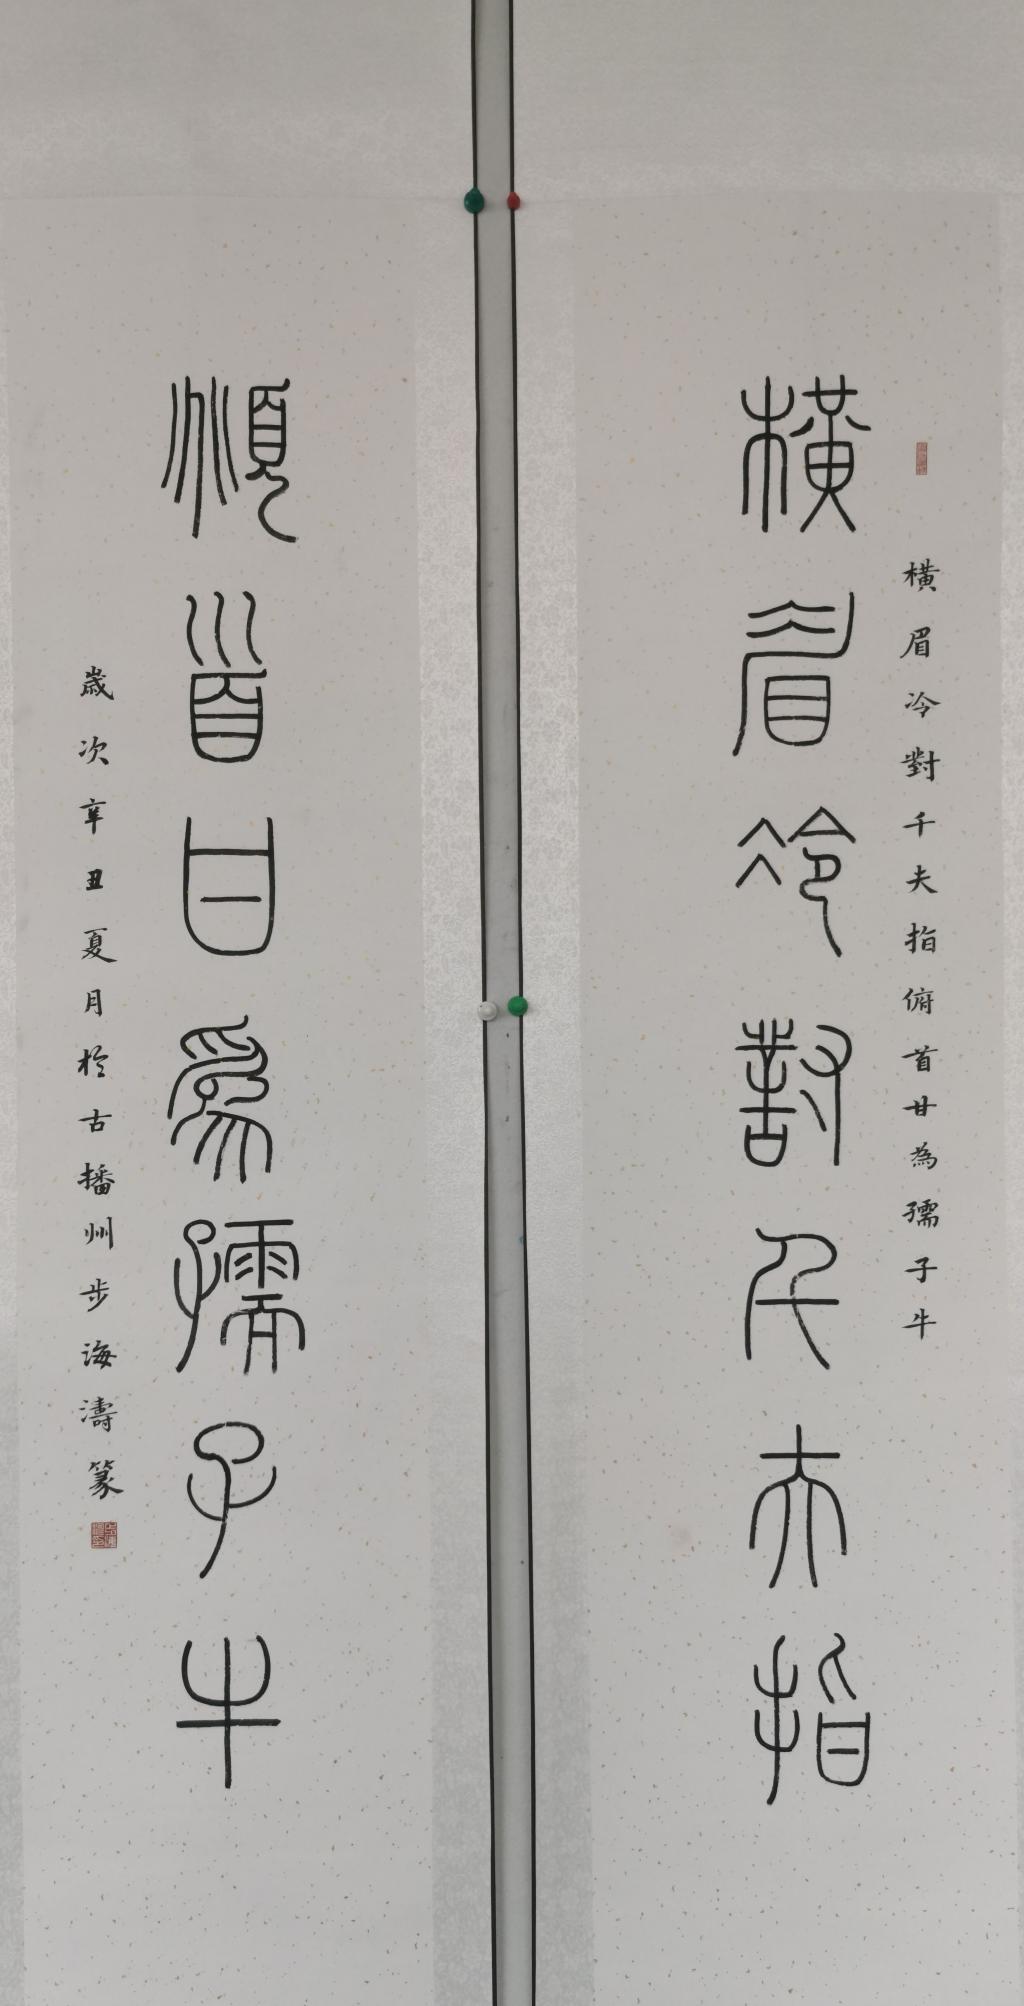 橫眉冷對千夫指俯首甘為孺子牛
橫眉冷對千夫指
頫首甘爲孺子牛
歲次辛丑夏月於古播州步海濤篆